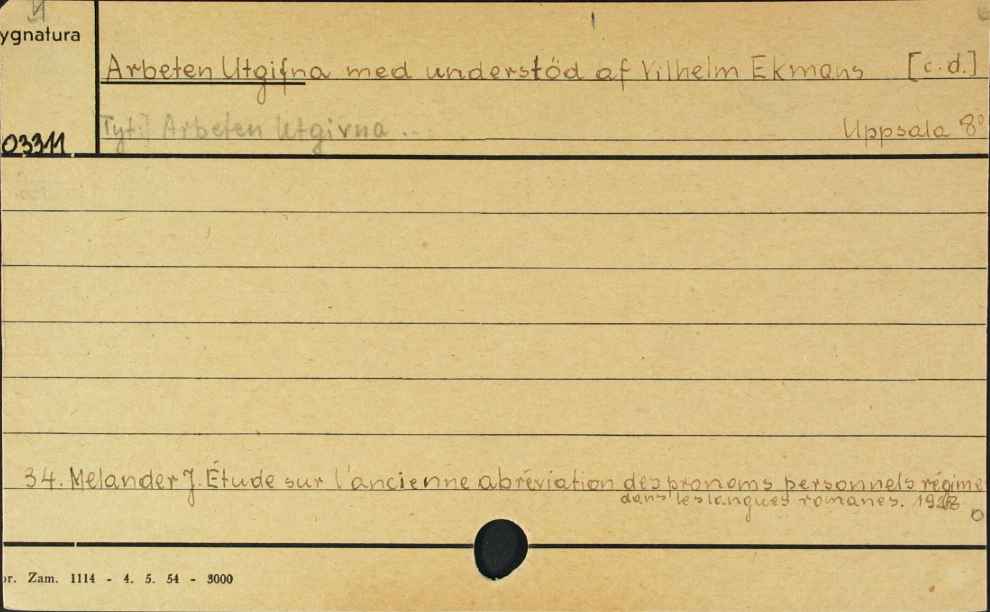 ygnatura
Arbeten Utgifna med understöd af Vilhelm Ekmans [c.d.]
03311
[Tyt:] Arbeten Utgivna ...
Uppsala 8°
34. Melander J. Étude sur l'ancienne abréviation des pronoms personnels régime
dans les langues romanes. 1928
or. Zam. 1114 - 4. 5. 54 - 3000